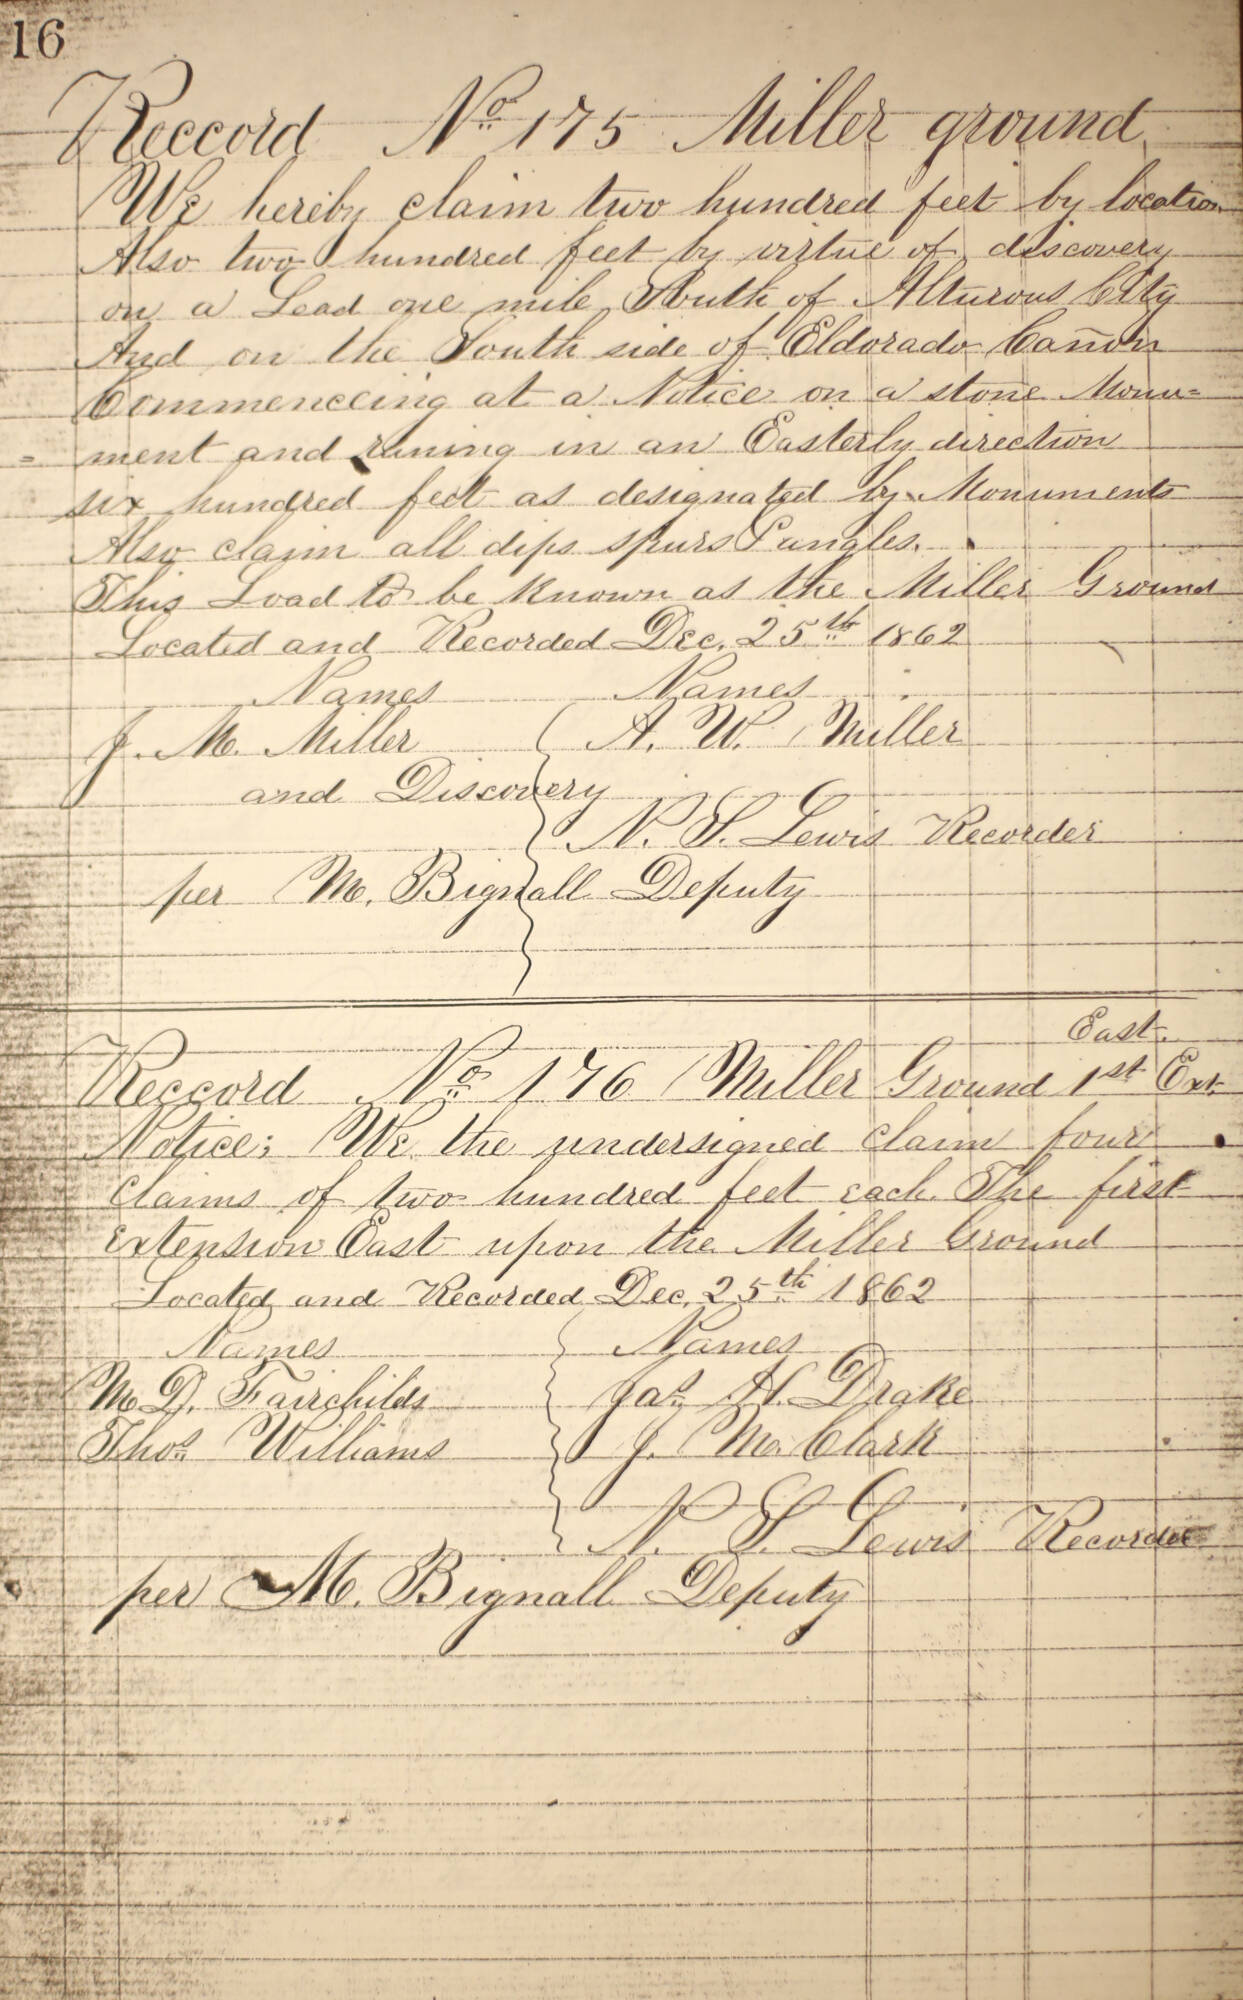 16
Reccord No 175 Miller ground
We hereby claim two hundred feet by location
Also two hundred feet by virtue of discovery
on a Lead one mile South of Alturous City
And on the South side of Eldorado Cañon
Commenceing at a Notice on a stone Monu=
= ment and runing in an Easterly direction
six hundred feet as designated by Monuments
Also claim all dips spurs & angles.
This Load to be known as the Miller Ground
Located and Recorded Dec. 25th 1862
Names Names
J. M. Miller A. W. Miller
and Discovery
N. S. Lewis Recorder
per M. Bignall Deputy
East
Reccord No 176 Miller Ground 1st Ext.
Notice; We the undersigned claim four
claims of two hundred feet each. The first
extension East upon the Miller Ground
Located and Recorded Dec. 25th 1862
Names Names
M D. Fairchilds Jas H. Drake
Thos Williams J. Mc Clark
N. S. Lewis Recorder
per M. Bignall Deputy